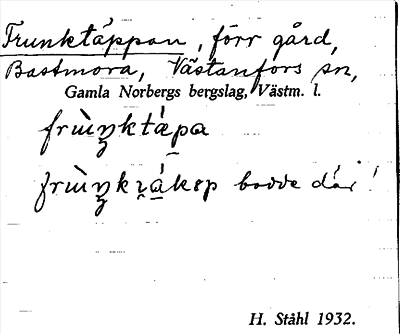 Frunktäppan, förr gård,
Bastmora, Västanfors sn,
Gamla Norbergs bergslag, Västm. l.
bodde där!
H. Ståhl 1932.